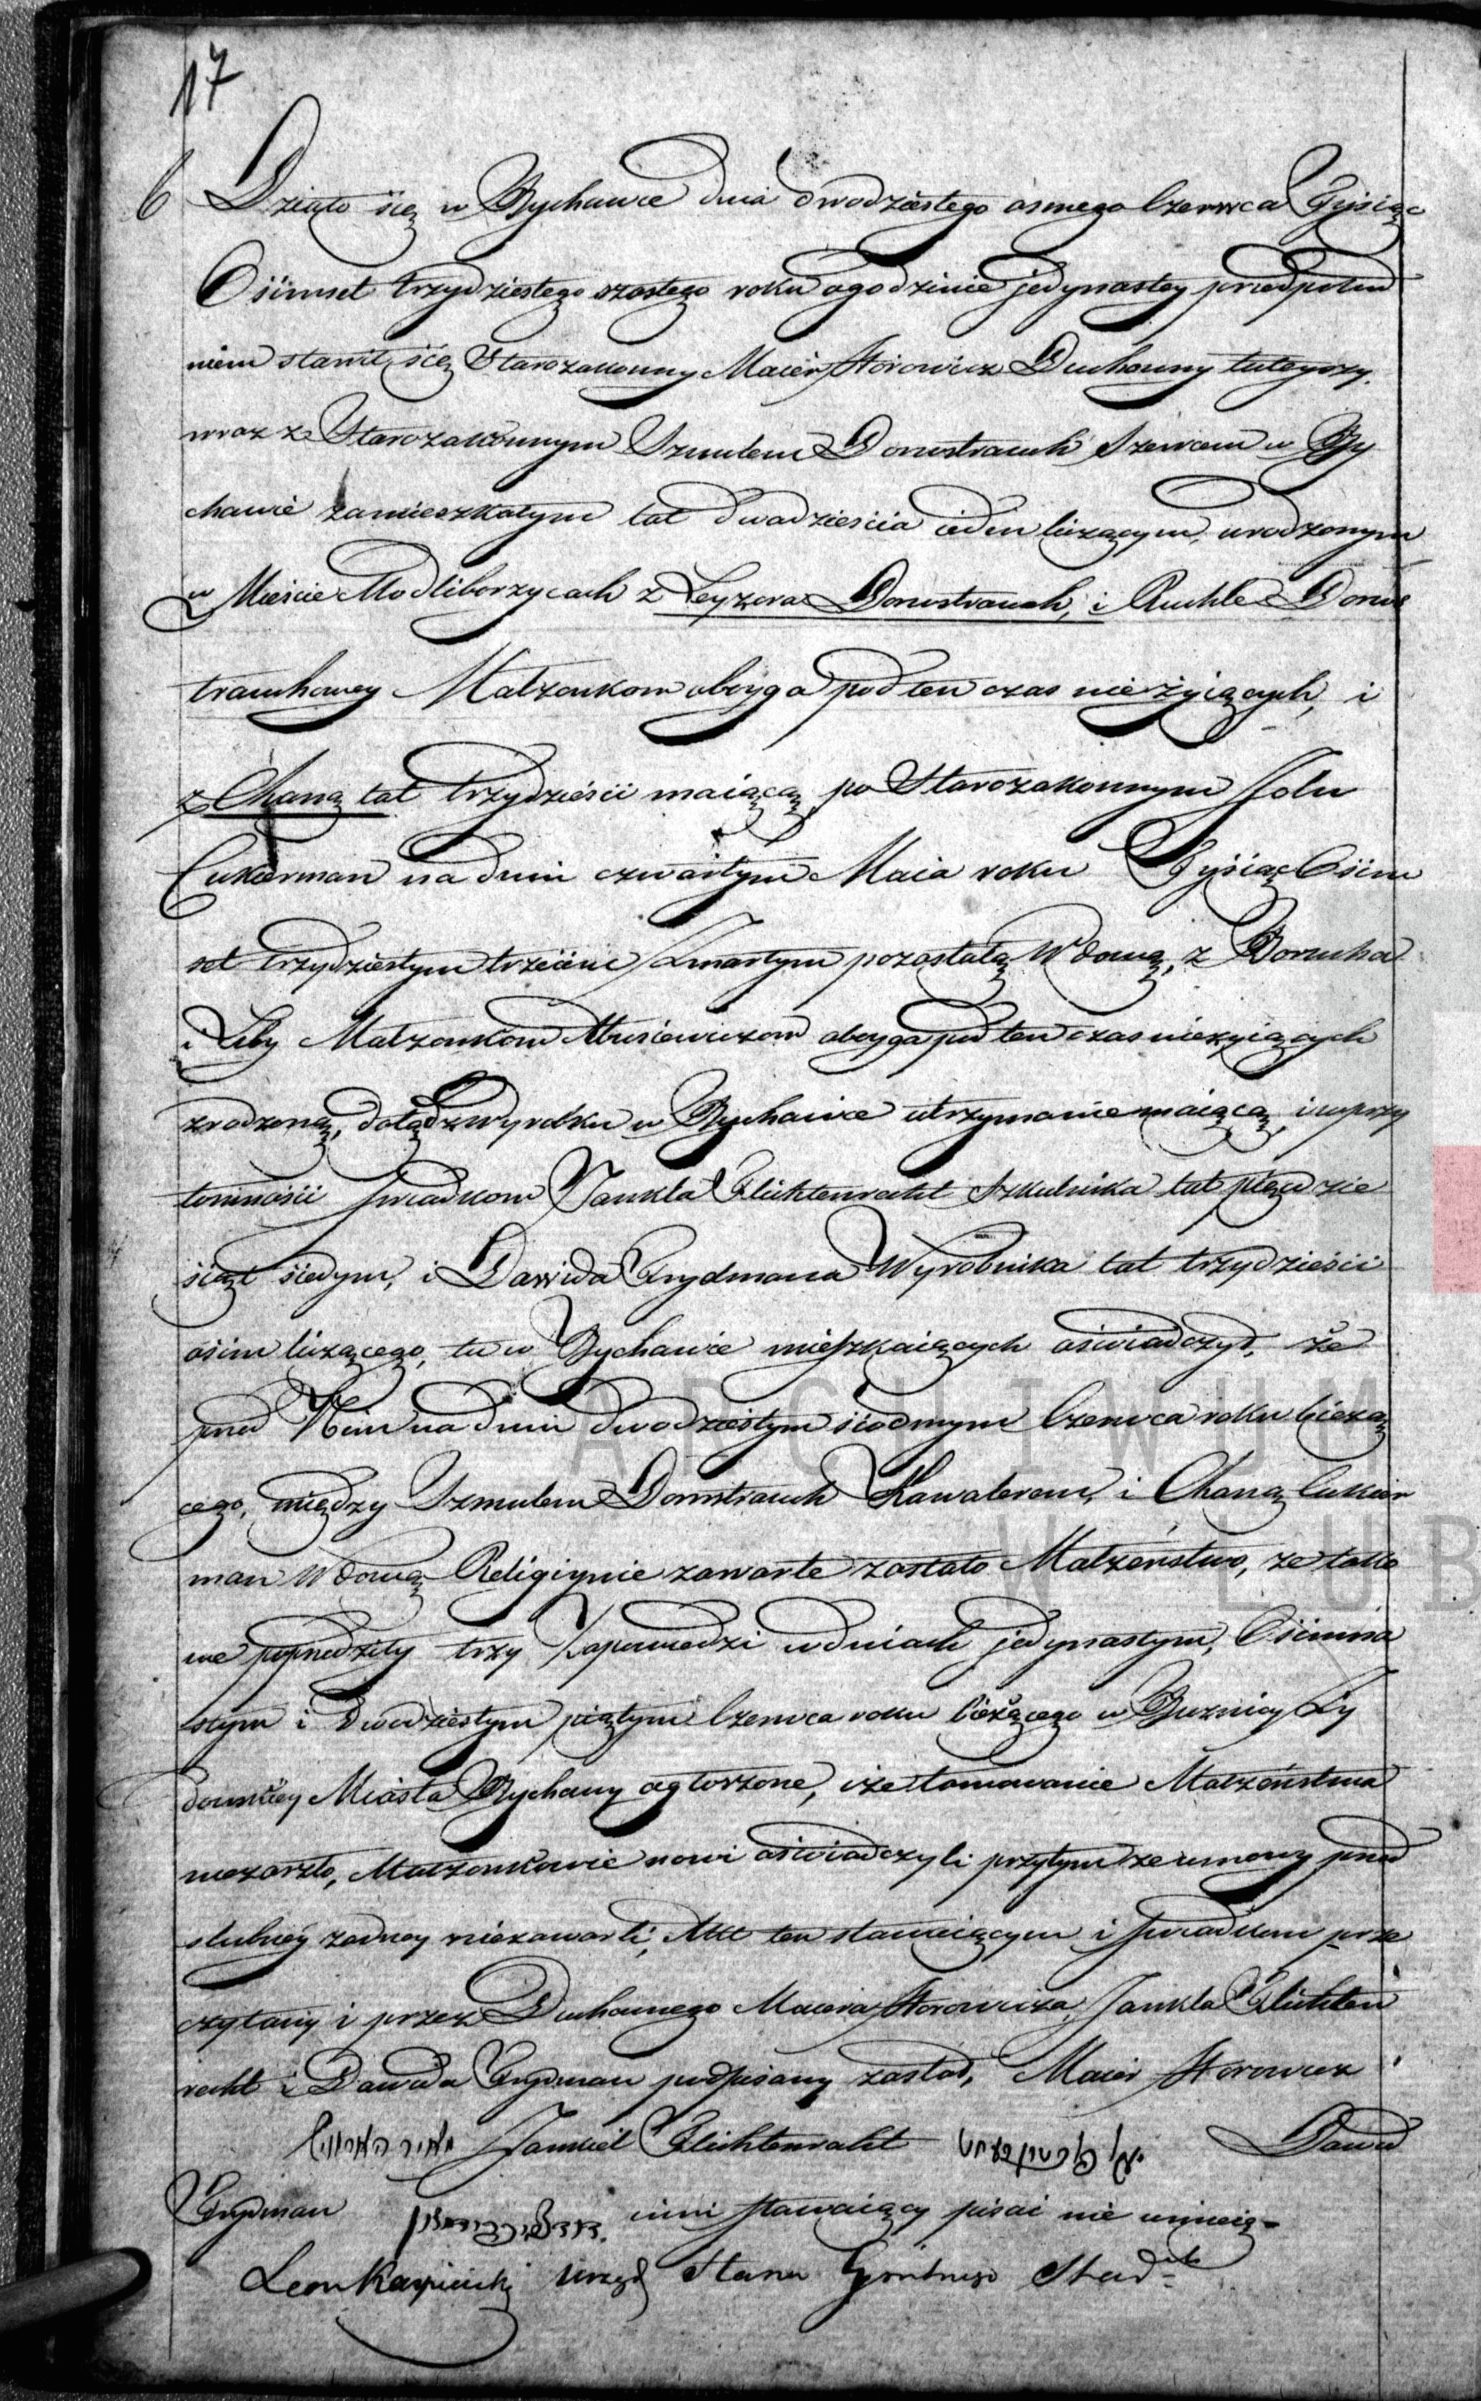 17
6 Działo się w Bychawie dnia dwodziestego osmego Czerwca Tysiąc
Osimset trzydziestego szostego roku ogodzinie jedynastey przedpołud
niem stawił się Starozakonny Maier Horowicz Duchowny tuteyszy.
wraz z Starozakonnym Szmulem Dornstrauch Szewcem w By
chawie zamieszkałym lat dwadzieścia ieden liczącym, urodzonym
w Mieście Modliborzycach z Leyzora Dornstrauch, i Ruchle Dorns
trauchowey Małżonkow oboyga pod ten czas nie żyiących, i
z Chaną lat trzydzieści maiącą, po Starozakonnym Jolu
Cukierman na dniu czwartym Maia roku Tysiąc Osim
set trzydziestym trzecim Zmarłym pozostałą Wdową, z Borucha
i Leby Małżonkow Musiewiczow oboyga pod ten czas nieżyiących
zrodzoną, dotąd z wyrobku w Bychawie utrzymanie maiącą, i w przy
tomności świadkow Jankla Flichtenracht Szkulnika lat pięcdzie
siąt siedym, i Dawida Frydmana Wyrobnika lat trzydzieści
osim liczącego, tu w Bychawie mieszkaiących oświadczył, że
przed Nim na dniu dwodziestym siodmym Czerwca roku bieżą
cego, między Szmulem Dornstrauch Kawalerem, i Chaną Cukier
man Wdową Religiynie zawarte zostało Małżeństwo, że tako
we poprzedziły trzy Zapowiedzi w dniach jedynastym, Osimna
stym i Dwodziestym piątym Czerwca roku bieżącego w Buznicy Ży
dowskiey Miasta Bychawy ogłoszone, i że tamowanie Małżeństwa
niezaszło, Małżonkowie nowi oświadczyli przytym że umowy przed
ślubney żadney niezawarli, Akt ten stawaiącym i świadkom prze
czytany i przez Duchownego Maiera Horowicza, Jankla Flichten
racht i Dawida Frydman podpisany został, Maier Horowicz
מאיר הארוויץ Jankiel Flichtenracht Dawid
Frydman דוד פרידמאן inni stawaiący pisać nie umieią –
Leon Urzęd Stanu